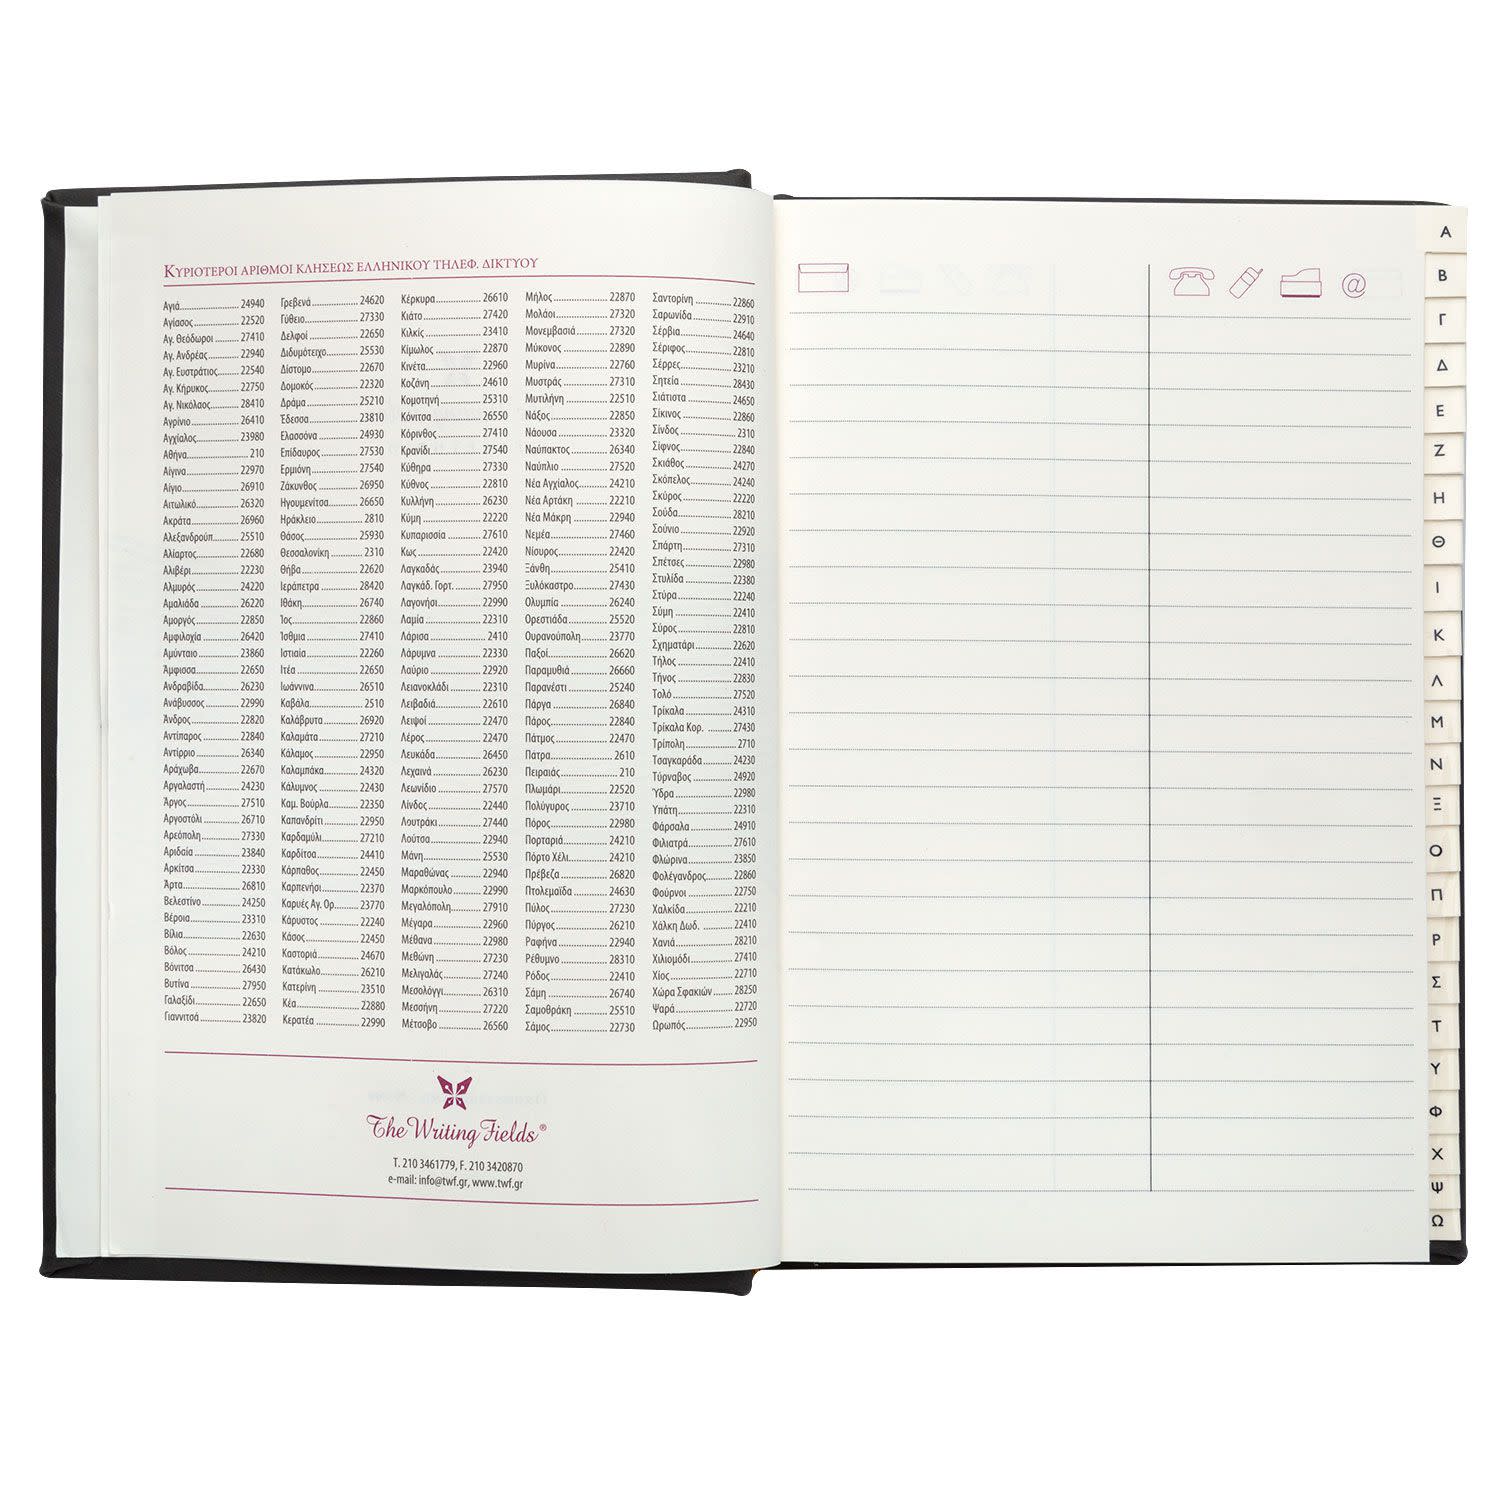 ΚΥΡΙΟΤΕΡΟΙ ΑΡΙΘΜΟΙ ΚΛΗΣΕΩΣ ΕΛΛΗΝΙΚΟΥ ΤΗΛΕΦ. ΔΙΚΤΥΟΥ
Αγιά 24940
Αγίασος 22520
Αγ. Θεόδωροι 27410
Αγ. Ανδρέας 22940
Αγ. Ευστράτιος 22540
Αγ. Κήρυκος 22750
Αγ. Νικόλαος 28410
Αγρίνιο 26410
Αγχίαλος 23980
Αθήνα 210
Αίγινα 22970
Αίγιο 26910
Αιτωλικό 26320
Ακράτα 26960
Αλεξανδρούπ. 25510
Αλίαρτος 22680
Αλιβέρι 22230
Αλμυρός 24220
Αμαλιάδα 26220
Αμοργός 22850
Αμφιλοχία 26420
Αμύνταιο 23860
Άμφισσα 22650
Ανδραβίδα 26230
Ανάβυσσος 22990
Άνδρος 22820
Αντίπαρος 22840
Αντίρριο 26340
Αράχωβα 22670
Αργαλαστή 24230
Άργος 27510
Αργοστόλι 26710
Αρεόπολη 27330
Αριδαία 23840
Αρκίτσα 22330
Άρτα 26810
Βελεστίνο 24250
Βέροια 23310
Βίλια 22630
Βόλος 24210
Βόνιτσα 26430
Βυτίνα 27950
Γαλαξίδι 22650
Γιαννιτσά 23820
Γρεβενά 24620
Γύθειο 27330
Δελφοί 22650
Διδυμότειχο 25530
Δίστομο 22670
Δομοκός 22320
Δράμα 25210
Έδεσσα 23810
Ελασσόνα 24930
Επίδαυρος 27530
Ερμιόνη 27540
Ζάκυνθος 26950
Ηγουμενίτσα 26650
Ηράκλειο 2810
Θάσος 25930
Θεσσαλονίκη 2310
Θήβα 22620
Ιεράπετρα 28420
Ιθάκη 26740
Ίος 22860
Ίσθμια 27410
Ιστιαία 22260
Ιτέα 22650
Ιωάννινα 26510
Καβάλα 2510
Καλάβρυτα 26920
Καλαμάτα 27210
Κάλαμος 22950
Καλαμπάκα 24320
Κάλυμνος 22430
Καμ. Βούρλα 22350
Καπανδρίτι 22950
Καρδαμύλι 27210
Καρδίτσα 24410
Κάρπαθος 22450
Καρπενήσι 22370
Καρυές Αγ. Ορ. 23770
Κάρυστος 22240
Κάσος 22450
Καστοριά 24670
Κατάκωλο 26210
Κατερίνη 23510
Κέα 22880
Κερατέα 22990
Κέρκυρα 26610
Κιάτο 27420
Κιλκίς 23410
Κίμωλος 22870
Κινέτα 22960
Κοζάνη 24610
Κομοτηνή 25310
Κόνιτσα 26550
Κόρινθος 27410
Κρανίδι 27540
Κύθηρα 27330
Κύθνος 22810
Κυλλήνη 26230
Κύμη 22220
Κυπαρισσία 27610
Κως 22420
Λαγκαδάς 23940
Λαγκάδ. Γορτ. 27950
Λαγονήσι 22990
Λαμία 22310
Λάρισα 2410
Λάρυμνα 22330
Λαύριο 22920
Λειανοκλάδι 22310
Λειβαδιά 22610
Λειψοί 22470
Λέρος 22470
Λευκάδα 26450
Λεχαινά 26230
Λεωνίδιο 27570
Λίνδος 22440
Λουτράκι 27440
Λούτσα 22940
Μάνη 25530
Μαραθώνας 22940
Μαρκόπουλο 22990
Μεγαλόπολη 27910
Μέγαρα 22960
Μέθανα 22980
Μεθώνη 27230
Μελιγαλάς 27240
Μεσολόγγι 26310
Μεσσήνη 27220
Μέτσοβο 26560
Μήλος 22870
Μολάοι 27320
Μονεμβασιά 27320
Μύκονος 22890
Μυρίνα 22760
Μυστράς 27310
Μυτιλήνη 22510
Νάξος 22850
Νάουσα 23320
Ναύπακτος 26340
Ναύπλιο 27520
Νέα Αγχίαλος 24210
Νέα Αρτάκη 22210
Νέα Μάκρη 22940
Νεμέα 27460
Νίσυρος 22420
Ξάνθη 25410
Ξυλόκαστρο 27430
Ολυμπία 26240
Ορεστιάδα 25520
Ουρανούπολη 23770
Παξοί 26620
Παραμυθιά 26660
Παρανέστι 25240
Πάργα 26840
Πάρος 22840
Πάτμος 22470
Πατρα 2610
Πειραιάς 210
Πλωμάρι 22520
Πολύγυρος 23710
Πόρος 22980
Πορταριά 24210
Πόρτο Χέλι 24210
Πρέβεζα 26820
Πτολεμαΐδα 24630
Πύλος 27230
Πύργος 26210
Ραφήνα 22940
Ρέθυμνο 28310
Ρόδος 22410
Σάμη 26740
Σαμοθράκη 25510
Σάμος 22730
Σαντορίνη 22860
Σαρωνίδα 22910
Σέρβια 24640
Σέριφος 22810
Σέρρες 23210
Σητεία 28430
Σιάτιστα 24650
Σίκινος 22860
Σίνδος 2310
Σίφνος 22840
Σκιάθος 24270
Σκόπελος 24240
Σκύρος 22220
Σούδα 28210
Σούνιο 22920
Σπάρτη 27310
Σπέτσες 22980
Στυλίδα 22380
Στύρα 22240
Σύμη 22410
Σύρος 22810
Σχηματάρι 22620
Τήλος 22410
Τήνος 22830
Τολό 27520
Τρίκαλα 24310
Τρίκαλα Κορ. 27430
Τρίπολη 2710
Τσαγκαράδα 24230
Τύρναβος 24920
Ύδρα 22980
Υπάτη 22310
Φάρσαλα 24910
Φιλιατρά 27610
Φλώρινα 23850
Φολέγανδρος 22860
Φούρνοι 22750
Χαλκίδα 22210
Χάλκη Δωδ. 22410
Χανιά 28210
Χιλιομόδι 27410
Χίος 22710
Χώρα Σφακιών 28250
Ψαρά 22720
Ωρωπός 22950
The Writing Fields®
T. 210 3461779, F. 210 3420870
e-mail: info@twf.gr, www.twf.gr
@
Α
Β
Γ
Δ
Ε
Ζ
Η
Θ
Ι
Κ
Λ
Μ
Ν
Ξ
Ο
Π
Ρ
Σ
Τ
Υ
Φ
Χ
Ψ
Ω